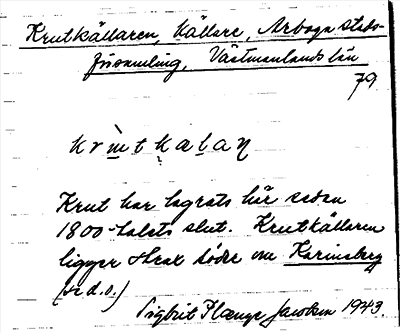 Krutkällaren, källare, Arboga stads-
församling, Västmanlands län
79
krutkalan
Krut har lagrats här sedan
1800-talets slut. Krutkällaren
ligger strax söder om Karinsberg
(se d.o.)
Sigbrit Plænge Jacobson 1943.